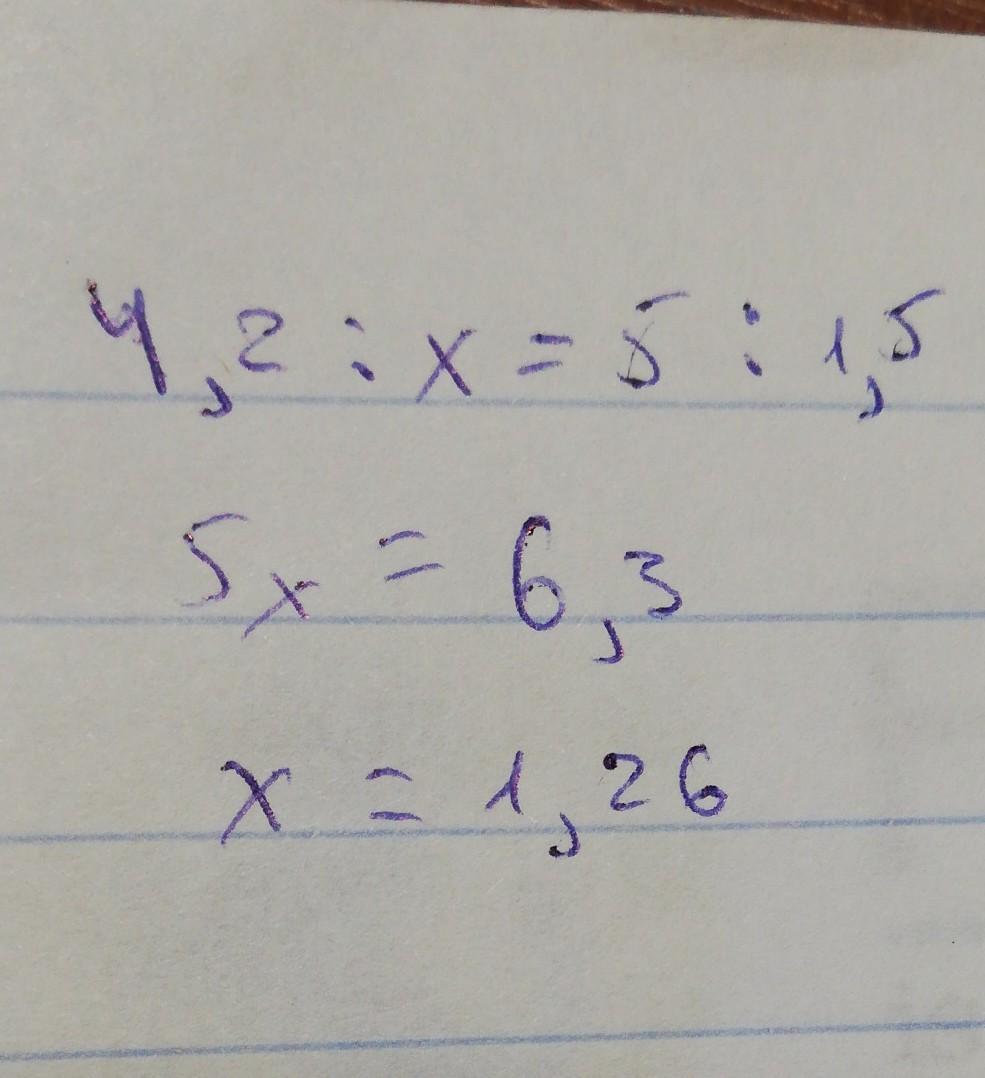 4,2 : x = 5 : 1,5
5x = 6,3
x = 1,26